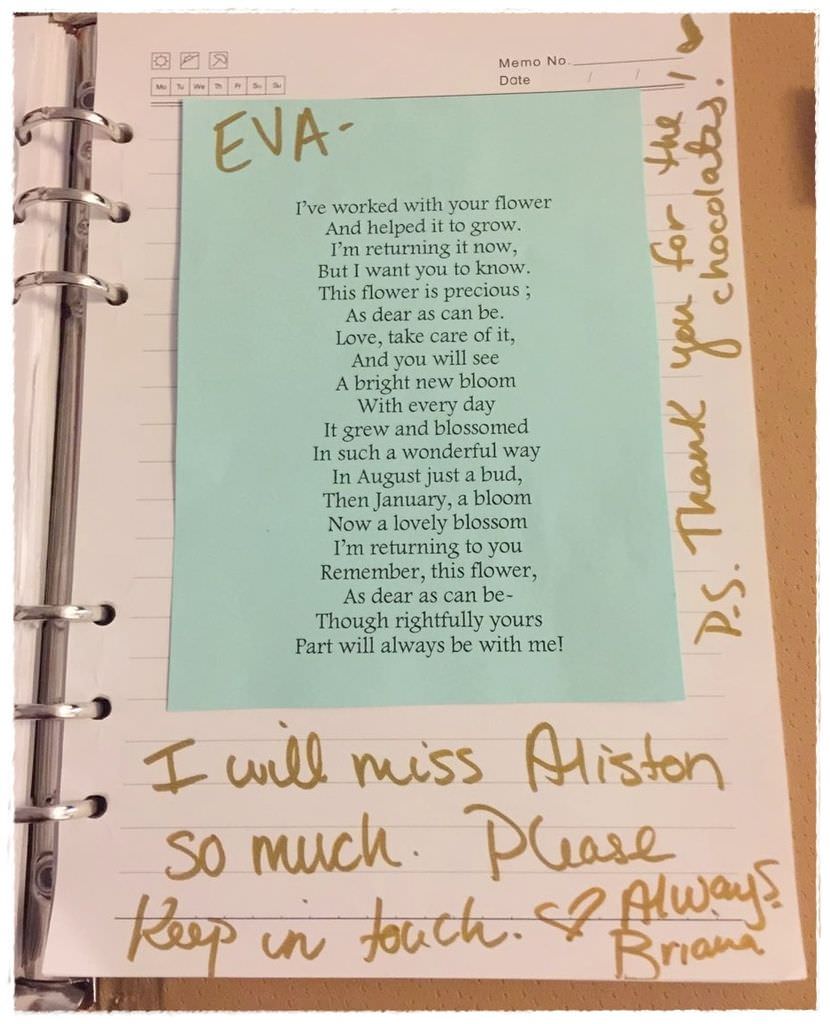 Memo No.
Date / /
Mo Tu We Th Fr Sa Su
EVA-
I've worked with your flower
And helped it to grow.
I'm returning it now,
But I want you to know.
This flower is precious ;
As dear as can be.
Love, take care of it,
And you will see
A bright new bloom
With every day
It grew and blossomed
In such a wonderful way
In August just a bud,
Then January, a bloom
Now a lovely blossom
I'm returning to you
Remember, this flower,
As dear as can be-
Though rightfully yours
Part will always be with me!
I will miss Aliston
so much. Please
Keep in touch. ♡ Always,
Briana
P.S. Thank you for the
chocolates.